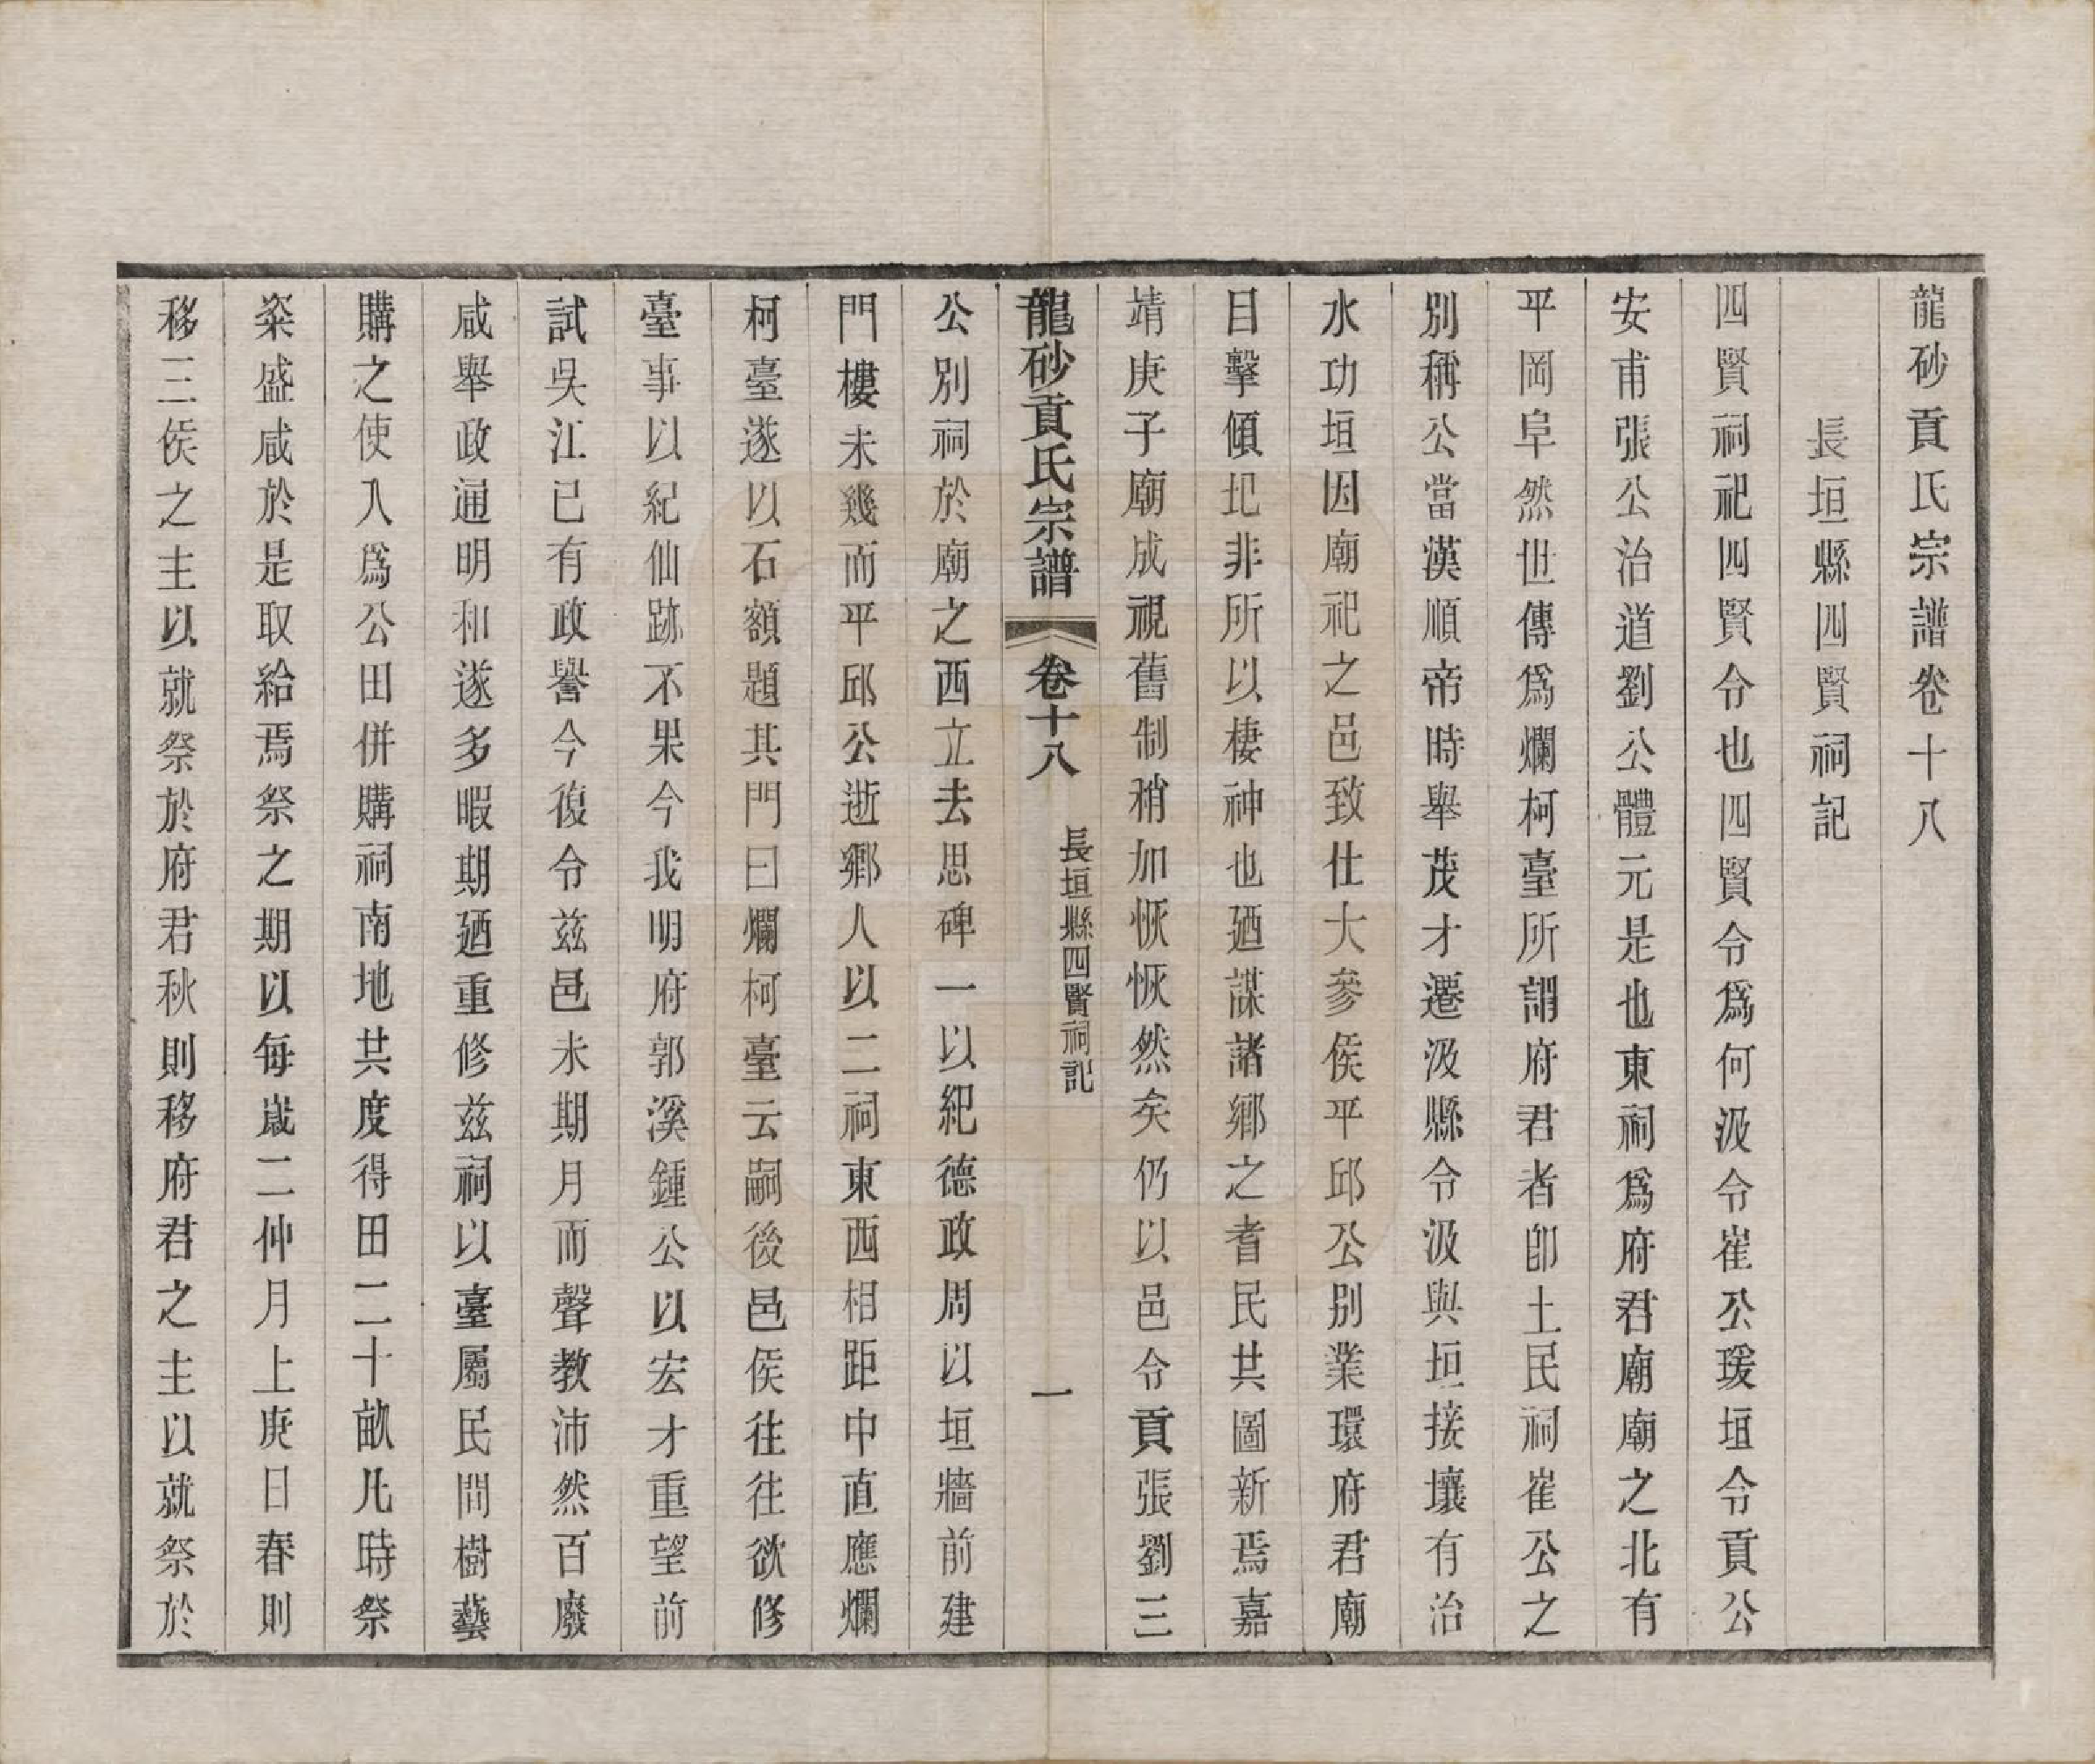 龍砂貢氏宗譜卷十八
長垣縣四賢祠記
四賢祠祀四賢令也四賢令爲何汲令崔公瑗垣令貢公
安甫張公治道劉公體元是也東祠爲府君廟廟之北有
平岡阜然世傳爲爛柯臺所謂府君者卽土民祠崔公之
別稱公當漢順帝時舉茂才遷汲縣令汲與垣接壤有治
水功垣因廟祀之邑致仕大參侯平邱公別業環府君廟
目擊傾圯非所以棲神也廼謀諸鄉之耆民共圖新焉嘉
靖庚子廟成視舊制稍加恢恢然矣仍以邑令貢張劉三
龍砂貢氏宗譜 卷十八 長垣縣四賢祠記 一
公別祠於廟之西立去思碑一以紀德政周以垣牆前建
門樓未幾而平邱公逝鄉人以二祠東西相距中直應爛
柯臺遂以石額題其門曰爛柯臺云嗣後邑侯往往欲修
臺事以紀仙跡不果今我明府郭溪鍾公以宏才重望前
試吳江已有政譽今復令兹邑未期月而聲教沛然百廢
咸舉政通明和遂多暇期廼重修兹祠以臺屬民間樹藝
購之使入爲公田併購祠南地共度得田二十畝凡時祭
粢盛咸於是取給焉祭之期以每嵗二仲月上庚日春則
移三侯之主以就祭於府君秋則移府君之主以就祭於